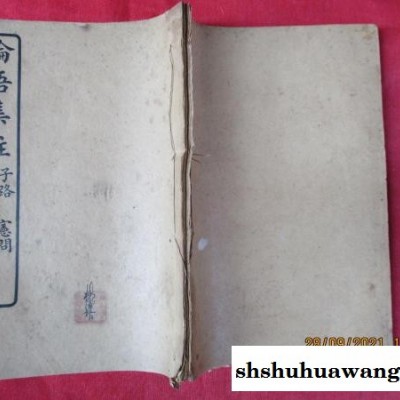 論語集註
子路 憲問
28/09/2021 1
shshuhuawang